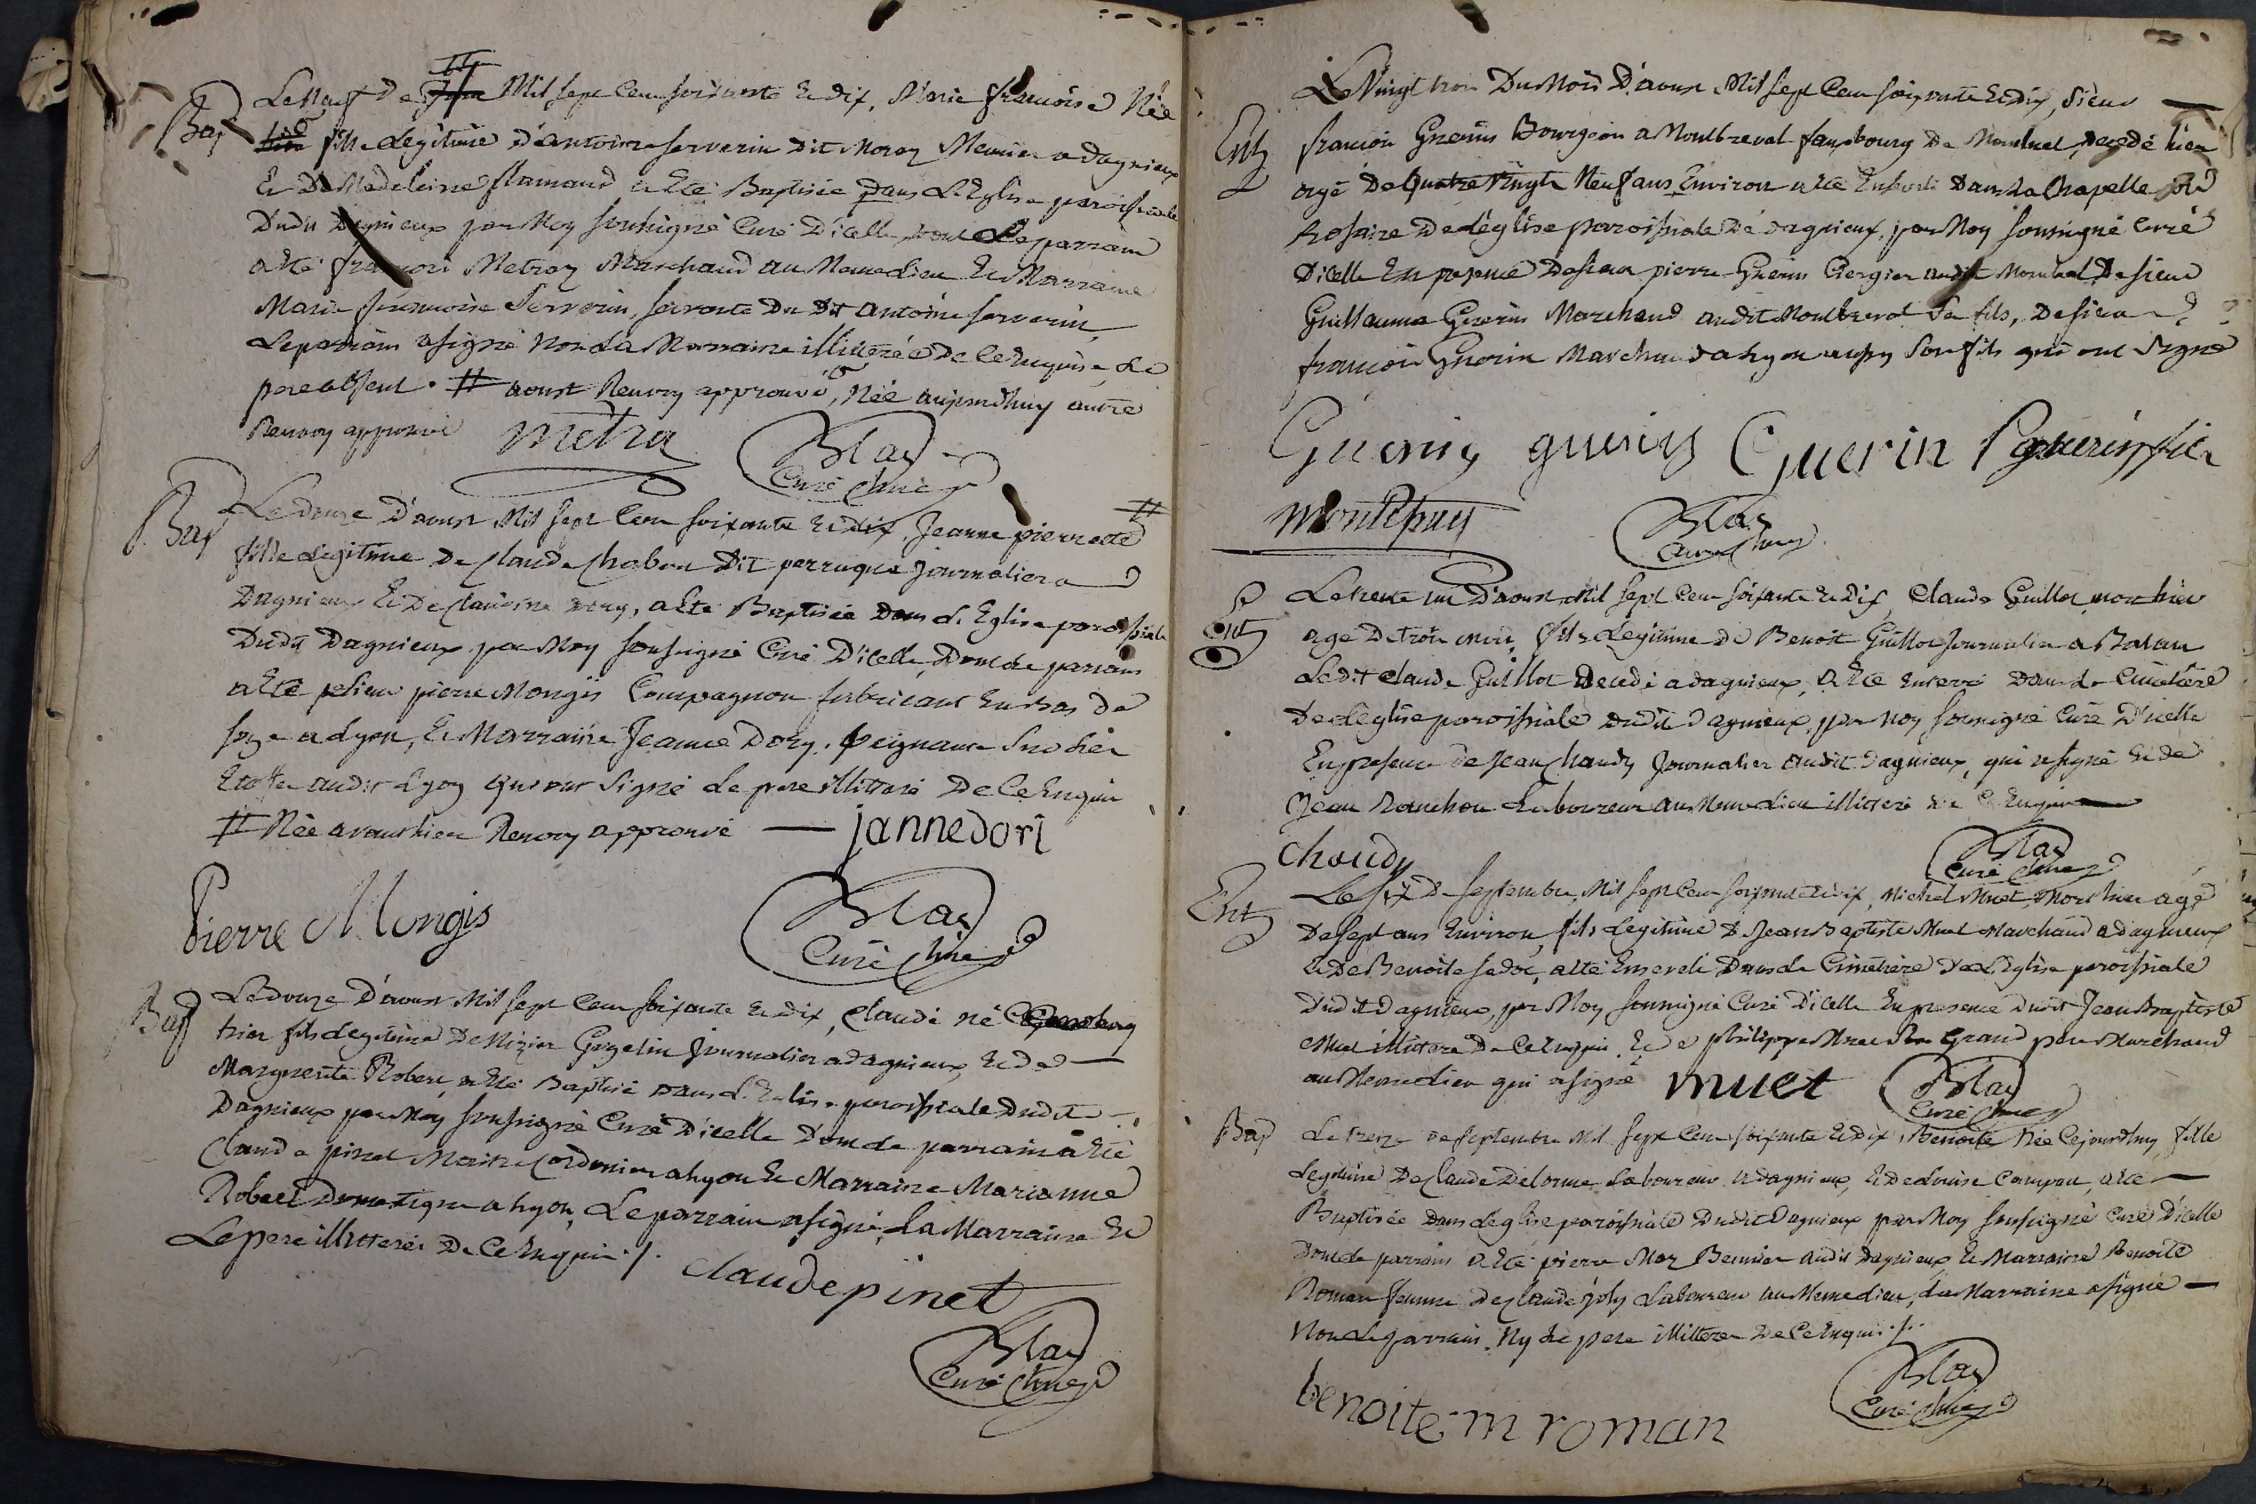 Bap
Le neuf de # Mil sept Cent soixante Et dix, Marie francoise Née
fille Legitime d'antoine serverin dit Moroz Meunier a dagnieux
Et De Madeleine flamand a Eté Baptisée dans L'Eglise paroissiale
Dudit Dagnieux par Moy soussigné Curé D'icelle dont Le parrain
a Eté francois Metroz Marchand au Meme Lieu Et Marraine
Marie francoise Serverin, servante Du Dit antoine serverin
Le parrain a signé Non La Marraine illitterée De Ce Enquise Le
pere absent. # aoust Renvoy approuvé, Née aujourdhuy autre
Renvoy approuvé metra Blay
Curé
Bap
Le douze D'aoust Mil sept Cent soixante Et dix, Jeanne pierrette #
fille Legitime De Claude Chabou Dit perruque journalier a
Dagnieux Et De Claudine Dory, a Eté Baptisée Dans L'Eglise paroissiale
Dudit Dagnieux par Moy soussigné Curé D'icelle, Dont Le parrain
a Eté sieur pierre Mongis Compagnon fabricant En bas de
soye a Lyon, Et Marraine Jeanne Dory,
audit Lyon qui ont Signé Le pere illitteré De Ce Enquis
# Née avant hier Renvoy approuvé — jannedori
Pierre Mongis Blay
Curé
Bap
Le Douze D'aoust Mil sept Cent soixante Et dix, Claude né
hier fils Legitime De Nizier Gogelin Journalier a dagnieux, Et de —
Marguerite Robert, a Eté Baptisé Dans L'Eglise paroissiale Dudit
Dagnieux par Moy soussigné Curé D'icelle Dont Le parrain a Eté
Claude pinet Maitre Cordonnier a Lyon Et Marraine Marianne
Robert Domestique a Lyon, Le parrain a signé, La Marraine Et
Le pere illitterés De Ce Enquis ./.
claudepinet
Blay
Curé
Ent
Le Vingt trois Du Mois D'aoust Mil sept Cent soixante Et Dix, Sieur —
francois Guerin Bourgeois a Montbreval fauxbourg De Montluel, decedé hier
agé De Quatre Vingts Neuf ans Environ a Eté Enseveli Dans La Chapelle du
Rosaire De L'église paroissiale De dagnieux, par Moy soussigné Curé
D'icelle En presence De sieur pierre Guerin audit Montluel De sieur
Guillaume Guerin Marchand audit Montbreval Son fils, De sieur
francois Guerin Marchand a Lyon aussy Son fils qui ont Signé
Guerin guerin Guerin guerin
Montepuy Blay
Curé
Ent
Le trente un D'aoust Mil sept Cent soixante Et Dix, Claude Guillot mort hier
agé De trois mois, fils Legitime De Benoit Guillot Journalier a Balan
Ledit Claude Guillot Decedé a dagnieux, a Eté Enterré Dans Le Cimetiere
De L'église paroissiale dudit Dagnieux, par Moy soussigné Curé D'icelle
En presence De Jean Chaudy Journalier audit Dagnieux, qui a signé Et de
Jean Ranchon Laboureur au Meme Lieu illitteré De Ce Enquis —
Chaudy Blay
Curé
Ent
Le six De septembre Mil sept Cent soixante Et dix, Michel Muet, Mort hier agé
De sept ans Environ, fils Legitime De Jean Baptiste Muet Marchand a dagnieux
Et De Benoite Jadoc, a Eté Enseveli Dans Le Cimetiere De L'Eglise paroissiale
Dudit Dagnieux, par Moy soussigné Curé D'icelle En presence Dudit Jean Baptiste
Muet illitteré De Ce Enquis, Et De Philippe Muet Son Grand pere Marchand
au Meme Lieu qui a signé muet Blay
Curé
Bap
Le treize De septembre Mil sept Cent soixante Et dix, Benoite Née Cejourdhuy fille
Legitime De Claude Delorme Laboureur a Dagnieux, Et De Louise Campan, a Eté —
Baptisée Dans L'eglise paroissiale Dudit Dagnieux par Moy soussigné Curé D'icelle
Dont Le parrain a Eté pierre Moz audit Dagnieux, Et Marraine Benoite
Roman femme De Claude joly Laboureur au Meme Lieu, La Marraine a signé —
Non Le parrain, Ny Le pere illitterés De Ce Enquis ./.
benoite m roman Blay
Curé